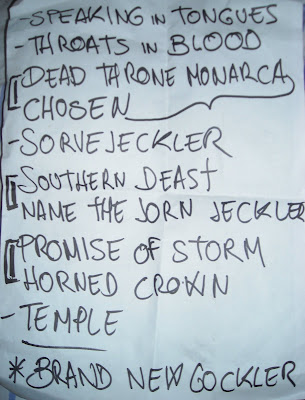 - SPEAKING IN TONGUES
- THROATS IN BLOOD
DEAD THRONE MONARCA
CHOSEN
- SORVEJECKLER
SOUTHERN DEAST
NAME THE JORN JECKLER
PROMISE OF STORM
HORNED CROWN
- TEMPLE
* BRAND NEW GOCKLER